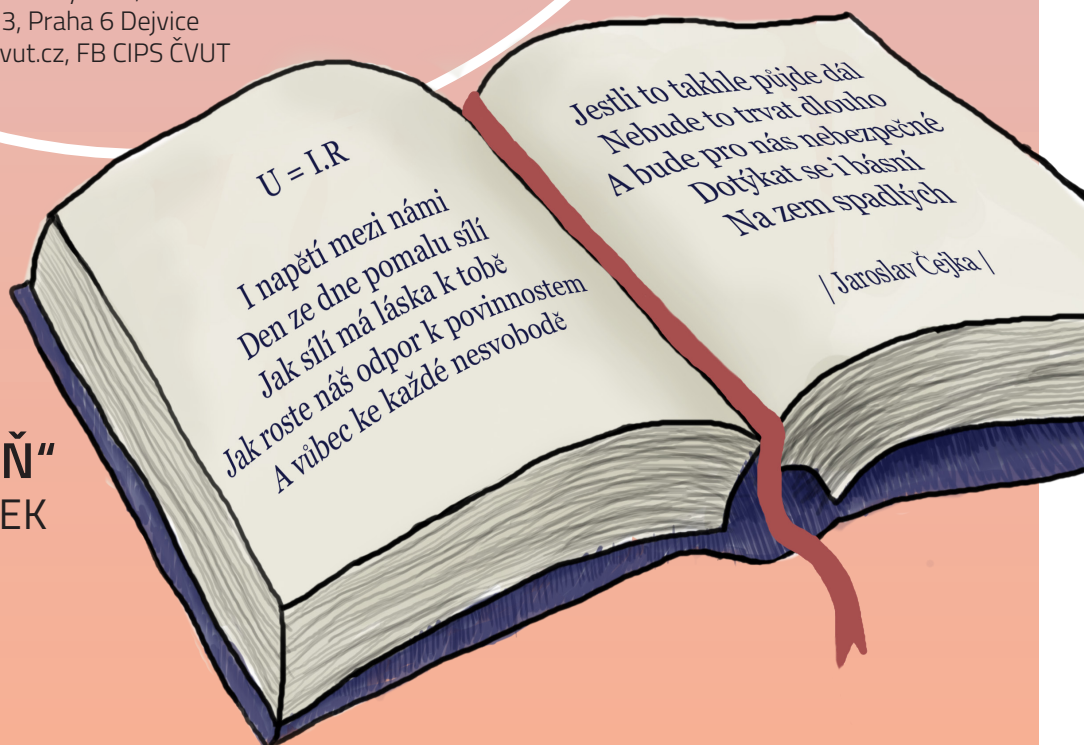 3, Praha 6 Dejvice
vut.cz, FB CIPS ČVUT
U = I.R
I napětí mezi námi
Den ze dne pomalu sílí
Jak sílí má láska k tobě
Jak roste náš odpor k povinnostem
A vůbec ke každé nesvobodě
Jestli to takhle půjde dál
Nebude to trvat dlouho
A bude pro nás nebezpečné
Dotýkat se i básní
Na zem spadlých
| Jaroslav Čejka |
Ň“
EK